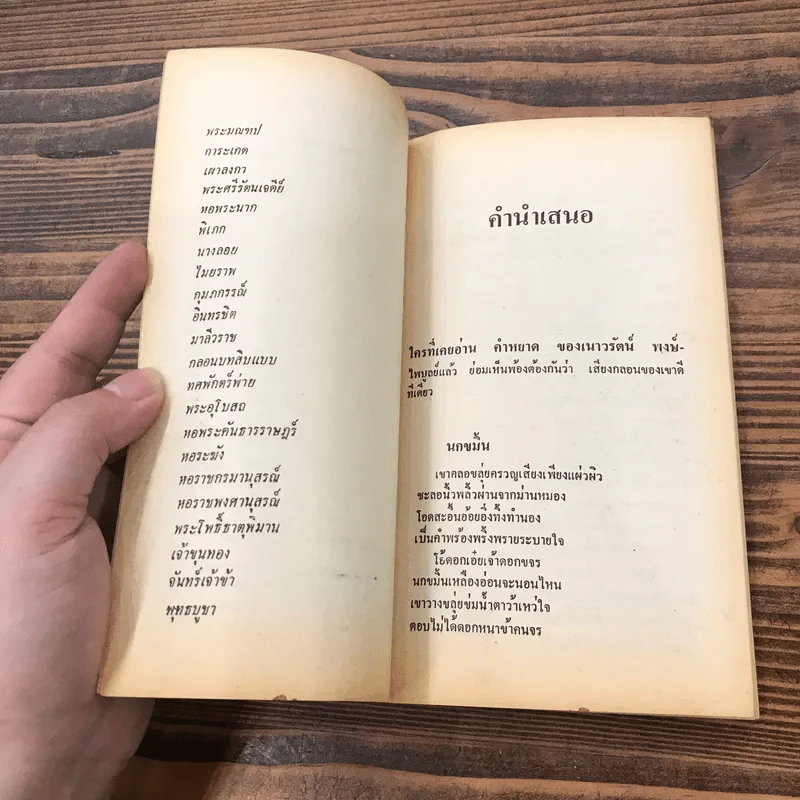 พระมณฑป
การะเกด
เผาลงกา
พระศรีรัตนเจดีย์
หอพระนาก
พิเภก
นางลอย
ไมยราพ
กุมภกรรณ์
อินทรชิต
มาลีวราช
กลอนบทสิบแบบ
ทศพักตร์พ่าย
พระอุโบสถ
หอพระคันธารราษฎร์
หอระฆัง
หอราชกรมานุสรณ์
หอราชพงศานุสรณ์
พระโพธิ์ธาตุพิมาน
เจ้าขุนทอง
จันทร์เจ้าข้า
พุทธบูชา
คำนำเสนอ
ใครที่เคยอ่าน คำหยาด ของเนาวรัตน์ พงษ์-
ไพบูลย์แล้ว ย่อมเห็นพ้องต้องกันว่า เสียงกลอนของเขาดี
ทีเดียว
นกขมิ้น
เขาคลอขลุ่ยครวญเสียงเพียงแผ่วผิว
ชะลอนิ้วพลิ้วผ่านจากม่านหมอง
โอดสะอื้นอ้อยอิ่งทิ้งทำนอง
เป็นคำพร้องพริ้งพรายระบายใจ
โอ้ดอกเอ๋ยเจ้าดอกขจร
นกขมิ้นเหลืองอ่อนจะนอนไหน
เขาวางขลุ่ยข่มน้ำตาว้าเหว่ใจ
ตอบไม่ได้ดอกหนาข้าคนจร